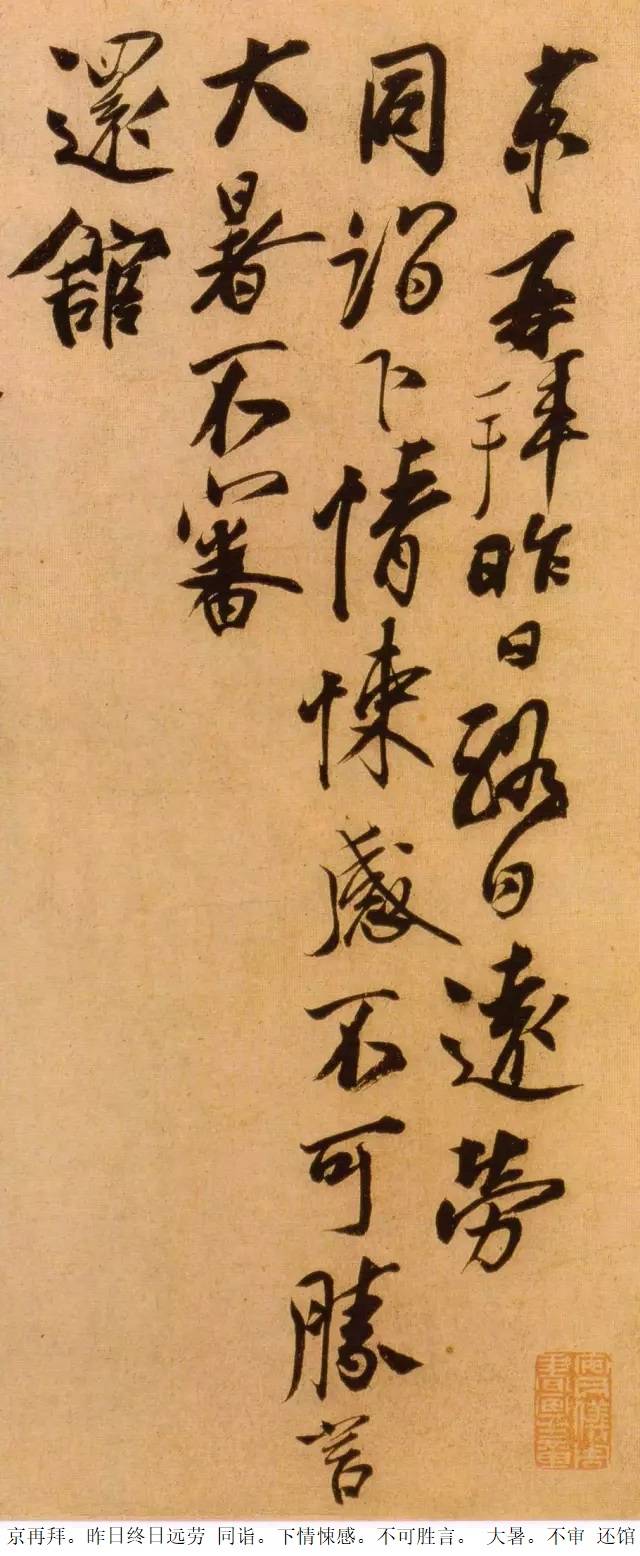 京再拜昨日終日遠勞
同詣下情悚感不可勝言
大暑不審
還舘
安氏儀周
書畫之章
京再拜。昨日终日远劳 同诣。下情悚感。不可胜言。 大暑。不审 还馆